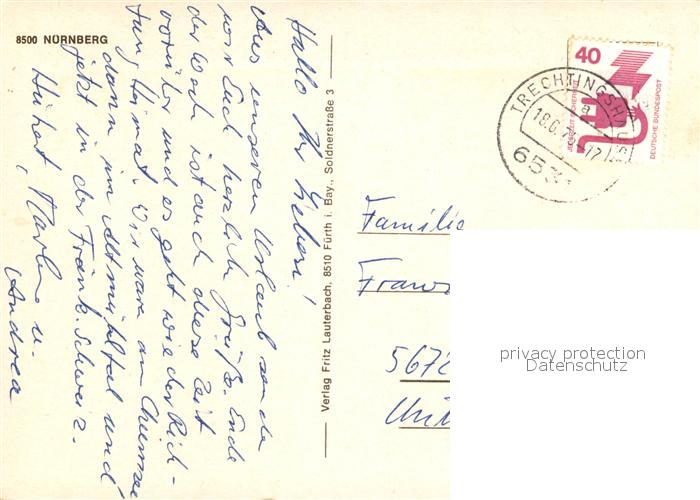 8500 NÜRNBERG
Hallo Ihr Lieben!
Aus unserem Urlaub senden
wir Euch herzliche Grüße. Ende
der Woche ist auch diese Zeit
vorüber und es geht wieder Rich-
tung Heimat. Wir waren am Chiemsee
dann im Altmühltal und
jetzt in der Fränk. Schweiz.
Hubert, Marlene u.
Andrea
Verlag Fritz Lauterbach, 8510 Fürth i. Bay., Soldnerstraße 3
40
JEDERZEIT SICHERHEIT
DEUTSCHE BUNDESPOST
TRECHTINGSHAUSEN
a
18.6.7
-17
653
Familie
Franz
5672
privacy protection
Datenschutz